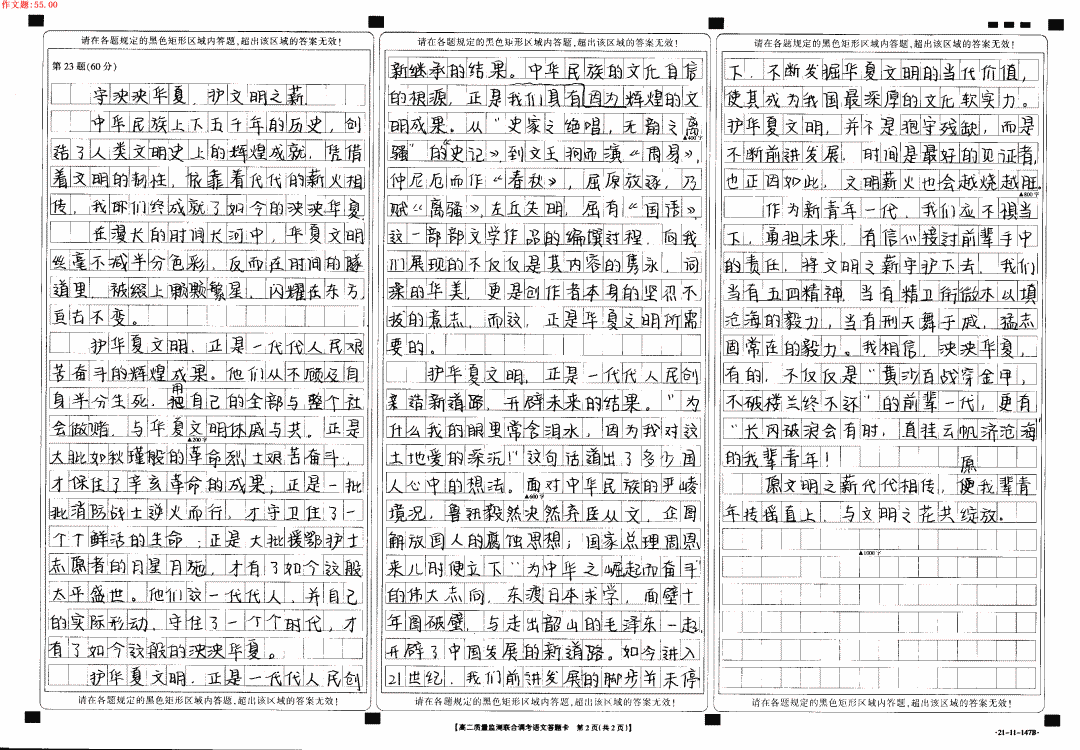 作文题:55.00
请在各题规定的黑色矩形区域内答题,超出该区域的答案无效!
第23题(60分)
守泱泱华夏,护文明之薪
中华民族上下五千年的历史,创
造了人类文明史上的辉煌成就,凭借
着文明的韧性,依靠着代代的薪火相
传,我们终成就了如今的泱泱华夏
在漫长的时间长河中,华夏文明
丝毫不减半分色彩,反而在时间的隧
道里,被缀上颗颗繁星,闪耀在东方,
亘古不变。
护华夏文明,正是一代代人民艰
苦奋斗的辉煌成果。他们从不顾及自
身半分生死,用自己的全部与整个社
会做赌,与华夏文明休戚与共。正是
▲200字
大批如秋瑾般的革命烈士艰苦奋斗,
才保住了辛亥革命的成果;正是一批
批消防战士逆火而行,才守卫住了一
个个鲜活的生命;正是大批援鄂护士
志愿者的日星月施,才有了如今这般
太平盛世。他们这一代代人,并自己
的实际形动,守住了一个个时代,才
有了如今这般的泱泱华夏。
护华夏文明,正是一代代人民创
请在各题规定的黑色矩形区域内答题,超出该区域的答案无效!
请在各题规定的黑色矩形区域内答题,超出该区域的答案无效!
新继承的结果。中华民族的文化自信
的根源,正是我们具有因为辉煌的文
明成果。从“史家之绝唱,无韵之离
▲400字
骚”的“史记》到文王拘而演《周易》,
仲尼厄而作《春秋》,屈原放逐,乃
赋《离骚》,左丘失明,屈有《国语》,
这一部部文学作品的编撰过程,向我
们展现的不仅仅是其内容的隽永,词
藻的华美,更是创作者本身的坚忍不
拔的意志,而这,正是华夏文明所需
要的。
护华夏文明,正是一代代人民创
造新道路,开辟未来的结果。“为
什么我的眼里常含泪水,因为我对这
土地爱的深沉!”这句话道出了多少国
人心中的想法。面对中华民族的严峻
▲600字
境况,鲁迅毅然决然弃医从文,企图
解放国人的腐蚀思想;国家总理周恩
来儿时便立下“为中华之崛起而奋斗”
的伟大志向,东渡日本求学,面壁十
年图破壁,与走出韶山的毛泽东一起,
开辟了中国发展的新道路。如今进入
21世纪,我们前进发展的脚步并未停
请在各题规定的黑色矩形区域内答题,超出该区域的答案无效!
【高二质量监测联合调考语文答题卡 第2页(共2页)】
请在各题规定的黑色矩形区域内答题,超出该区域的答案无效!
下,不断发掘华夏文明的当代价值,
使其成为我国最深厚的文化软实力。
护华夏文明,并不是抱守残缺,而是
不断前进发展,时间是最好的见证者,
也正因如此,文明薪火也会越烧越旺。
▲800字
作为新青年一代,我们应不惧当
下,勇担未来,有信心接过前辈手中
的责任,将文明之薪守护下去,我们
当有五四精神,当有精卫衔微木以填
沧海的毅力,当有刑天舞干戚,猛志
固常在的毅力。我相信,泱泱华夏,
有的,不仅仅是“黄沙百战穿金甲,
不破楼兰终不还”的前辈一代,更有
“长风破浪会有时,直挂云帆济沧海”
的我辈青年!
愿文明之薪代代相传,愿我辈青
年扶摇直上,与文明之花共绽放。
▲1000字
请在各题规定的黑色矩形区域内答题,超出该区域的答案无效!
·21-11-147B·